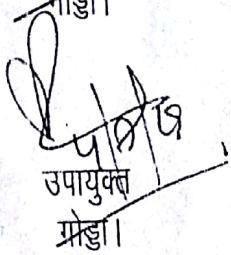 गोड्डा।
उपायुक्त
गोड्डा।